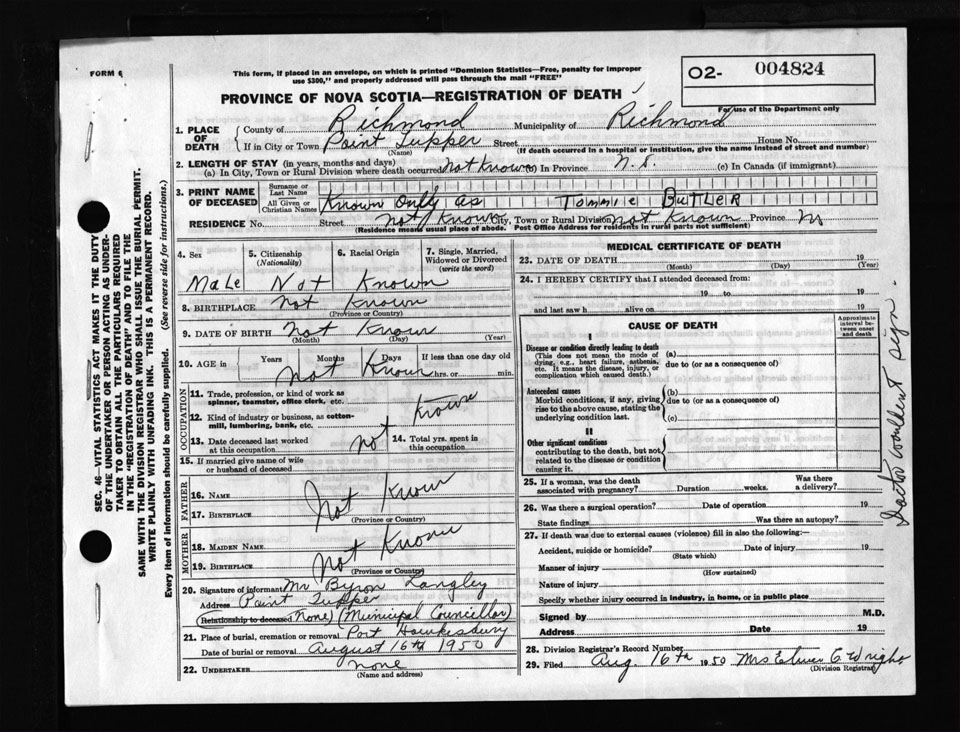 FORM 6
This form, if placed in an envelope, on which is printed "Dominion Statistics—Free, penalty for improper
use $300," and properly addressed will pass through the mail "FREE"
O2- 004824
For use of the Department only
PROVINCE OF NOVA SCOTIA—REGISTRATION OF DEATH
SEC. 46—VITAL STATISTICS ACT MAKES IT THE DUTY
OF THE UNDERTAKER OR PERSON ACTING AS UNDER-
TAKER TO OBTAIN ALL THE PARTICULARS REQUIRED
IN THE "REGISTRATION OF DEATH" AND TO FILE THE
SAME WITH THE DIVISION REGISTRAR WHO SHALL ISSUE THE BURIAL PERMIT.
WRITE PLAINLY WITH UNFADING INK. THIS IS A PERMANENT RECORD.
Every item of information should be carefully supplied. (See reverse side for instructions.)
1. PLACE OF DEATH County of Richmond Municipality of Richmond
If in City or Town Point Tupper Street House No.
(Name) (If death occurred in a hospital or institution, give the name instead of street and number)
2. LENGTH OF STAY (in years, months and days)
(a) In City, Town or Rural Division where death occurred Not Known (b) In Province N.S. (c) In Canada (if immigrant)
3. PRINT NAME OF DECEASED Surname or Last Name
All Given or Christian Names Known Only as Tommie Butler
RESIDENCE No. Street Not Known City, Town or Rural Division Not Known Province
(Residence means usual place of abode. Post Office Address for residents in rural parts not sufficient)
4. Sex 5. Citizenship (Nationality) 6. Racial Origin 7. Single, Married, Widowed or Divorced (write the word)
Male Not Known
8. BIRTHPLACE Not Known
(Province or Country)
9. DATE OF BIRTH Not Known
(Month) (Day) (Year)
10. AGE in Years Months Days If less than one day old
Not Known hrs. or min.
OCCUPATION
11. Trade, profession, or kind of work as
spinner, teamster, office clerk, etc.
12. Kind of industry or business, as cotton-
mill, lumbering, bank, etc.
Not Known
13. Date deceased last worked
at this occupation
14. Total yrs. spent in
this occupation
15. If married give name of wife
or husband of deceased
FATHER
16. Name
Not Know
17. Birthplace
(Province or Country)
MOTHER
18. Maiden Name
Not Known
19. Birthplace
(Province or Country)
20. Signature of informant Mr Byron Langley
Address Point Tupper
Relationship to deceased None) (Municipal Councillor)
21. Place of burial, cremation or removal Port Hawkesbury
Date of burial or removal August 16th 1950
22. UNDERTAKER none
(Name and address)
MEDICAL CERTIFICATE OF DEATH
23. DATE OF DEATH 19
(Month) (Day) (Year)
24. I HEREBY CERTIFY that I attended deceased from:
19 to 19
and last saw h alive on 19
CAUSE OF DEATH
Approximate interval between onset and death
I
Disease or condition directly leading to death
(This does not mean the mode of
dying, e.g., heart failure, asthenia,
etc. It means the disease, injury, or
complication which caused death.)
(a)
due to (or as a consequence of)
Antecedent causes
Morbid conditions, if any, giving
rise to the above cause, stating the
underlying condition last.
(b)
due to (or as a consequence of)
(c)
II
Other significant conditions
contributing to the death, but not
related to the disease or condition
causing it.
Doctor wouldent sign.
25. If a woman, was the death
associated with pregnancy? Duration weeks. Was there a delivery?
26. Was there a surgical operation? Date of operation 19
State findings Was there an autopsy?
27. If death was due to external causes (violence) fill in also the following:—
Accident, suicide or homicide? Date of injury 19
(State which)
Manner of injury
(How sustained)
Nature of injury
Specify whether injury occurred in industry, in home, or in public place
Signed by M.D.
Address Date 19
28. Division Registrar's Record Number
29. Filed Aug. 16th 1950 Mrs
(Division Registrar)